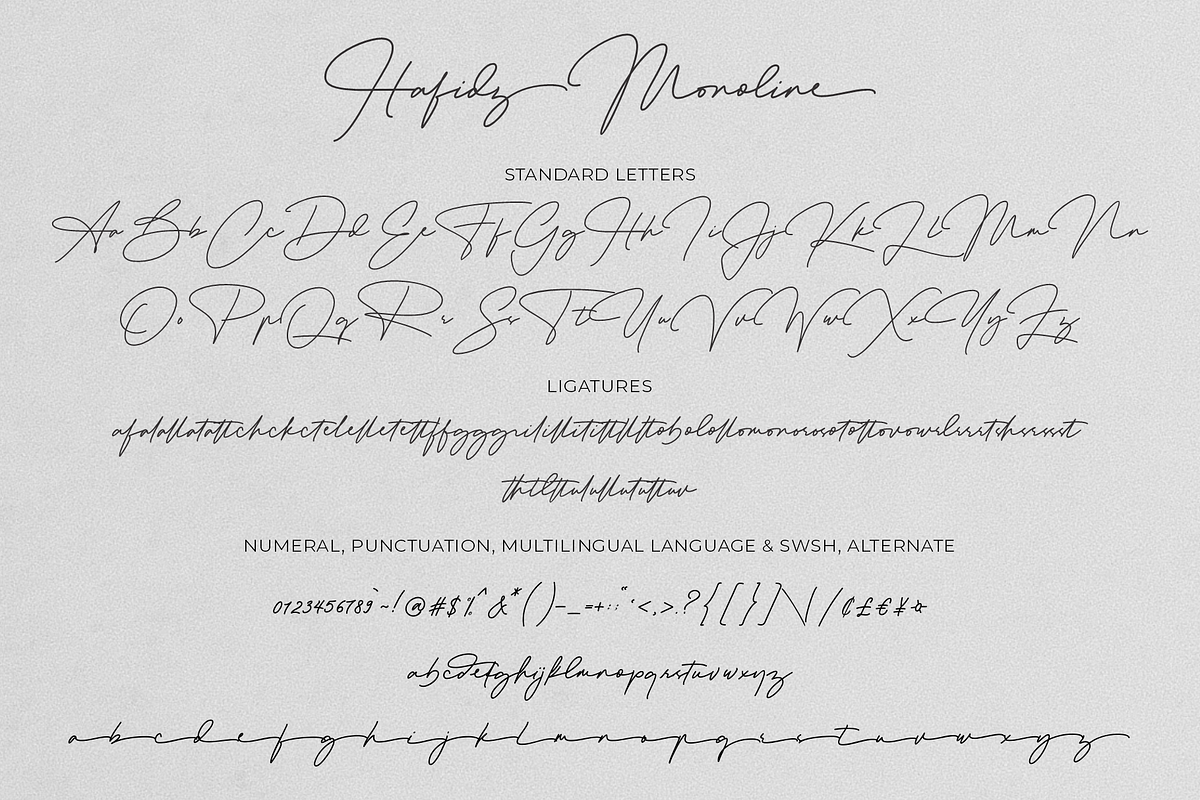 Hafidz Monoline
STANDARD LETTERS
Aa Bb Cc Dd Ee Ff Gg Hh Ii Jj Kk Ll Mm Nn
Oo Pp Qq Rr Ss Tt Uu Vv Ww Xx Yy Zz
LIGATURES
NUMERAL, PUNCTUATION, MULTILINGUAL LANGUAGE & SWSH, ALTERNATE
0123456789`~!@#$%^&*()-_=+:;"'<,>.?{[}]\/¢£€¥¤
abcdefghijklmnopqrstuvwxyz
abcdefghijklmnopqrstuvwxyz